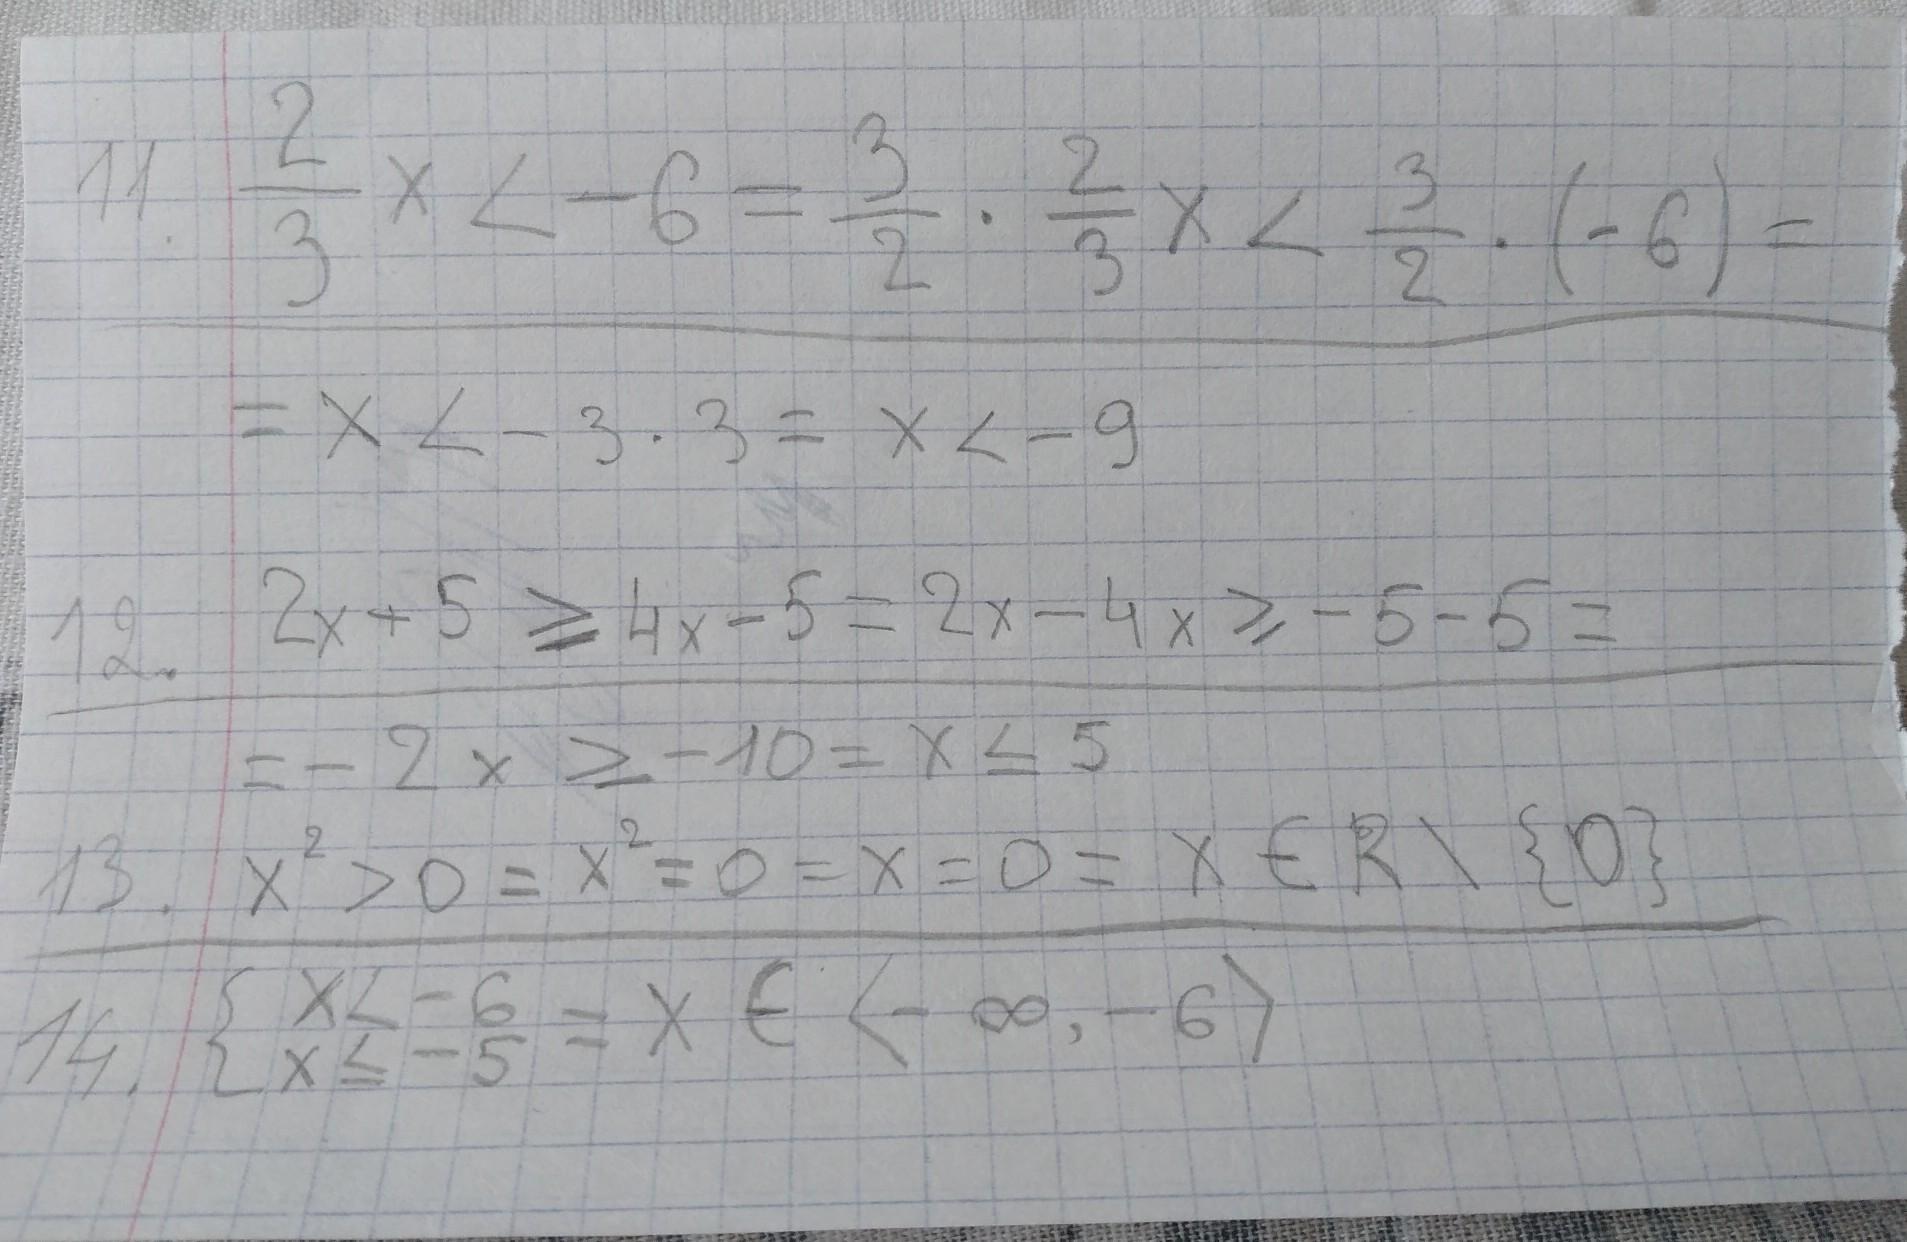 11. 2/3 x < -6 = 3/2 · 2/3 x < 3/2 · (-6) =
= x < -3 · 3 = x < -9
12. 2x + 5 ≥ 4x - 5 = 2x - 4x ≥ -5 - 5 =
= -2x ≥ -10 = x ≤ 5
13. x² > 0 = x² = 0 = x = 0 = x ∈ R \ {0}
14. { x < -6
x ≤ -5 = x ∈ ⟨-∞, -6⟩